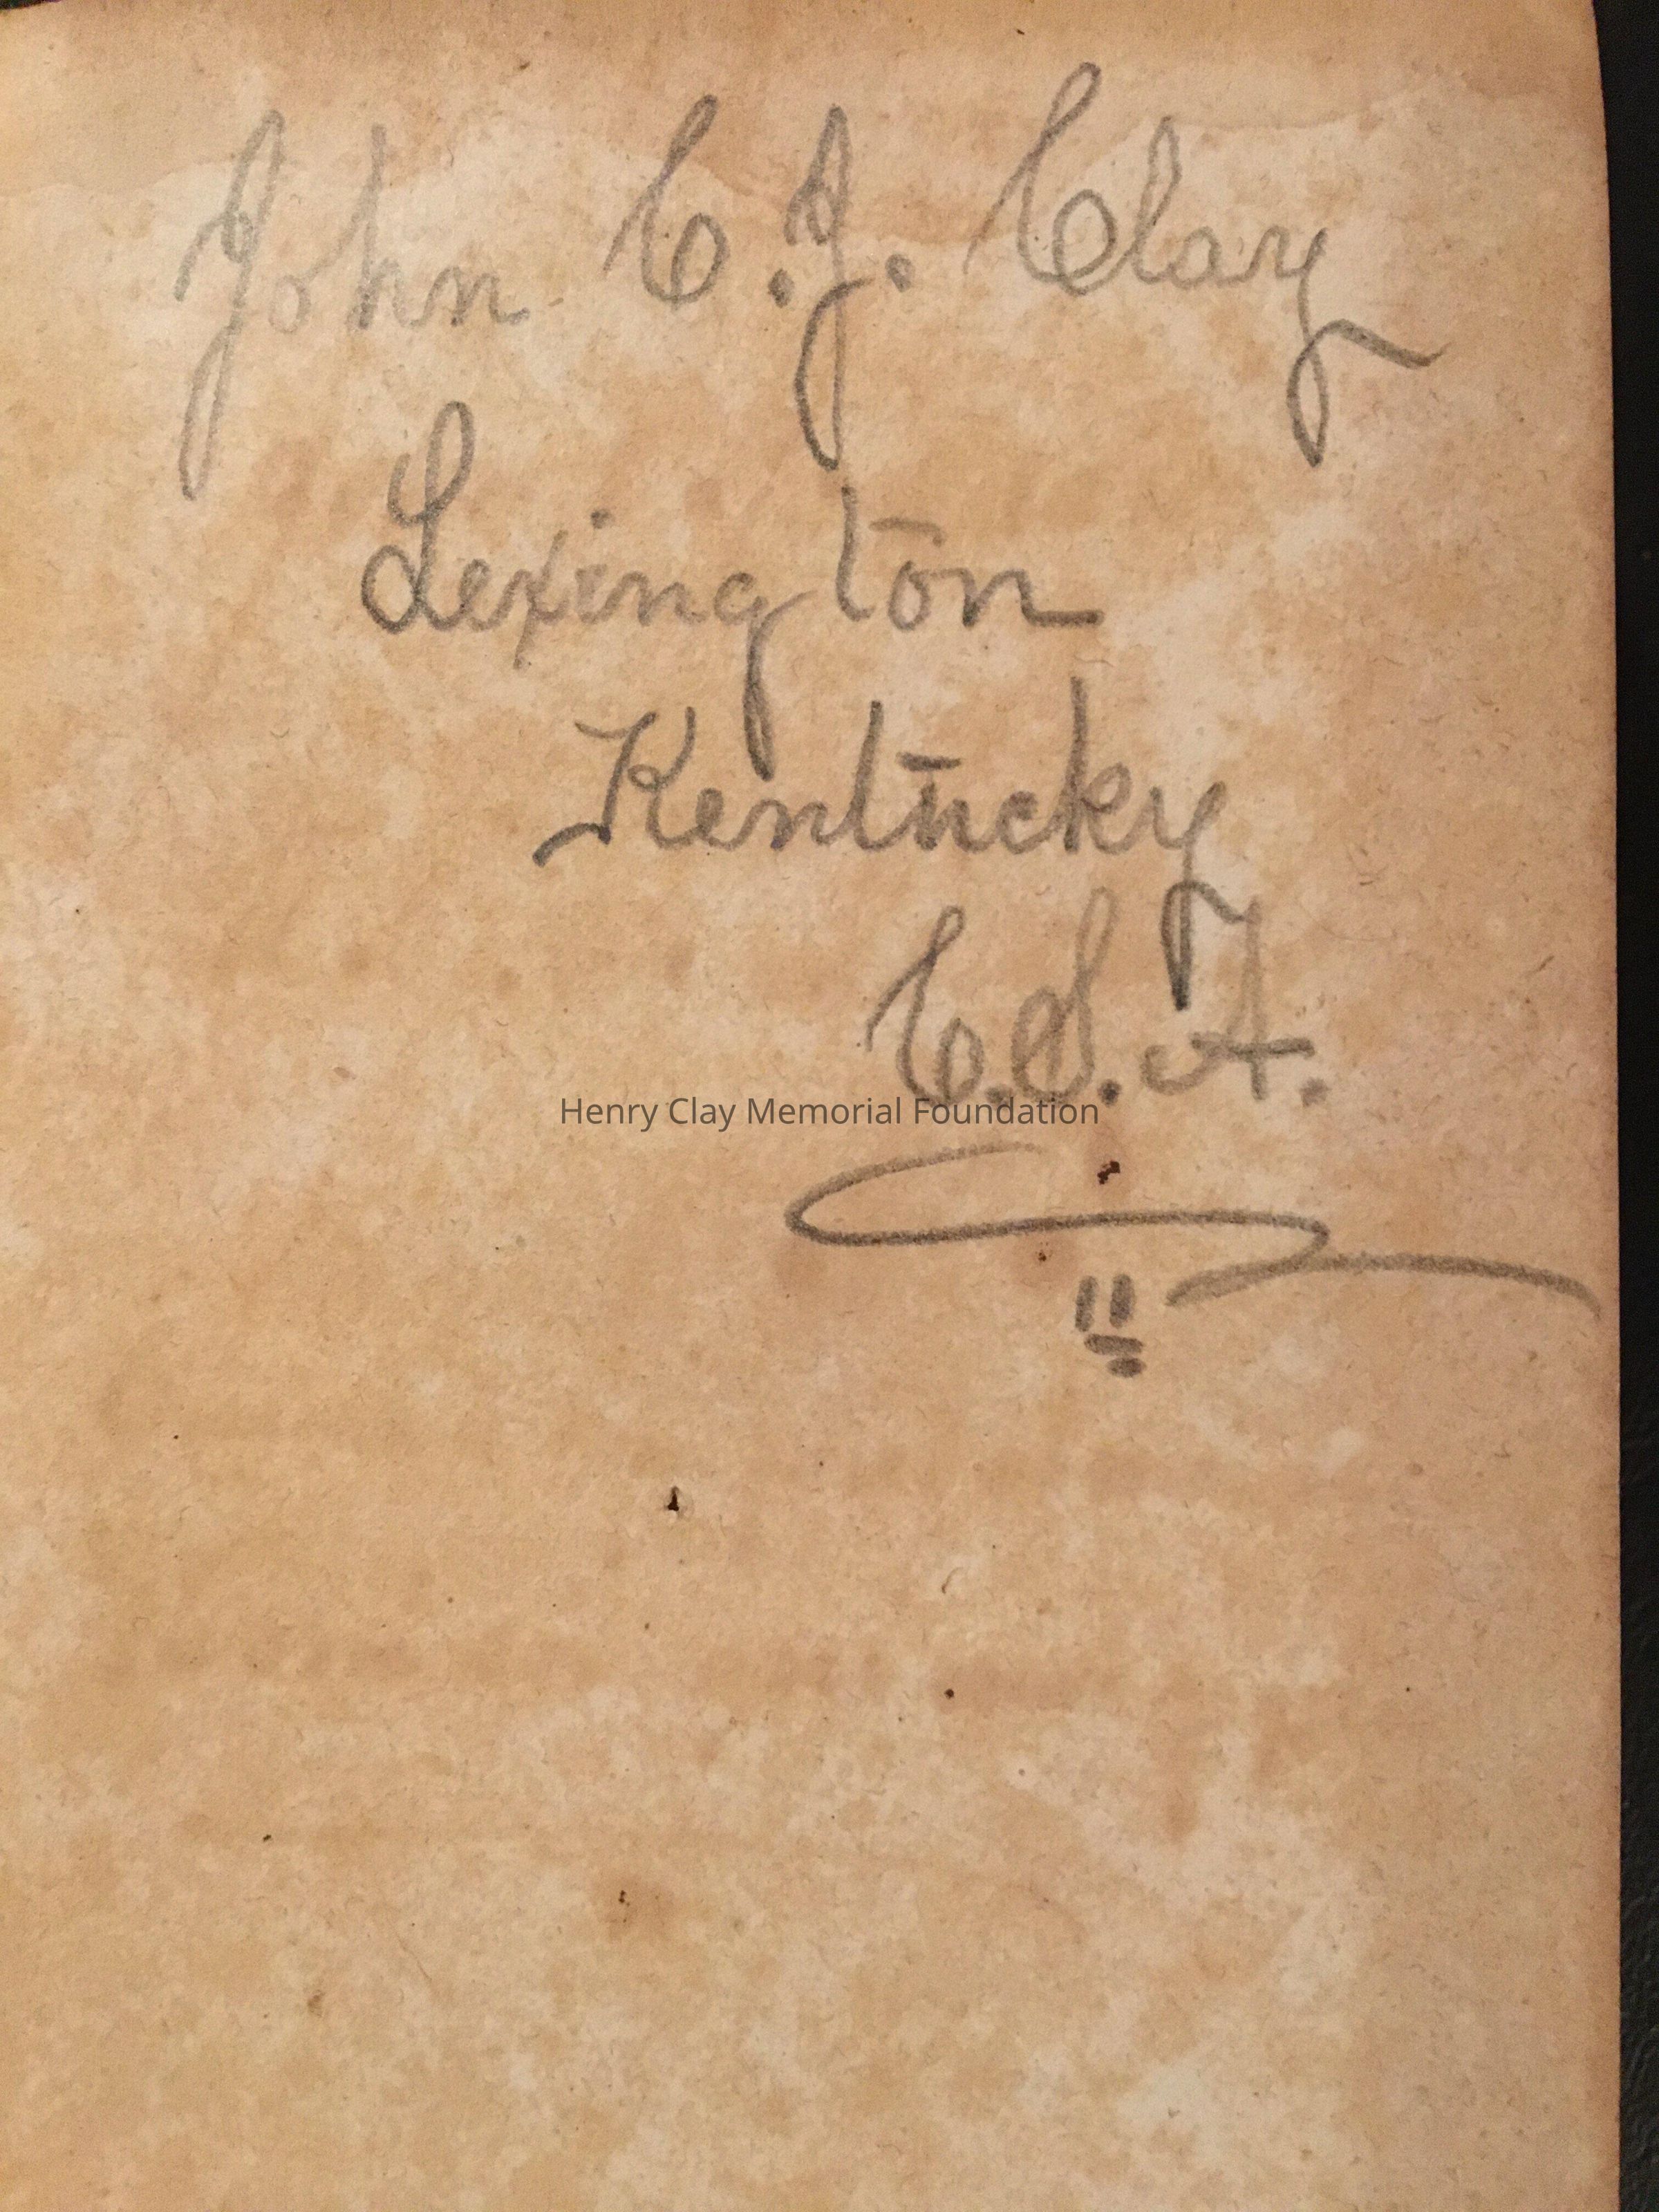 John C. J. Clay
Lexington
Kentucky
C.S.A.
Henry Clay Memorial Foundation